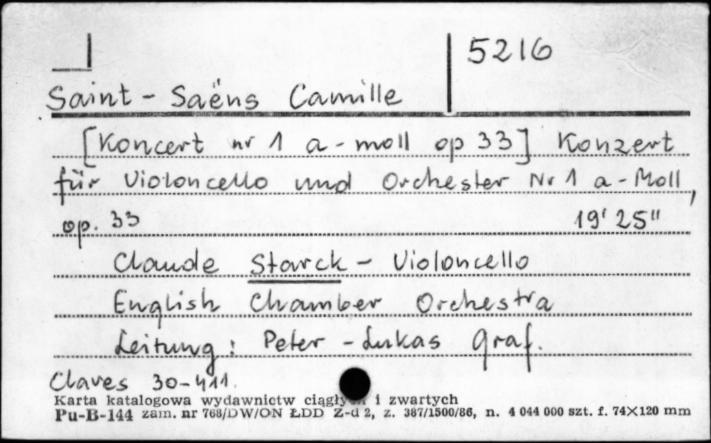 5216
Saint-Saëns Camille
[Koncert nr 1 a-moll op 33] Konzert
für Violoncello und Orchester Nr 1 a-Moll,
op. 33 19' 25"
Claude Starck - Violoncello
English Chamber Orchestra
Leitung: Peter-Lukas Graf.
Claves 30-411.
Karta katalogowa wydawnictw ciągłych i zwartych
Pu-B-144 zam. nr 768/DW/ON ŁDD Z-d 2, z. 387/1500/86, n. 4 044 000 szt. f. 74X120 mm